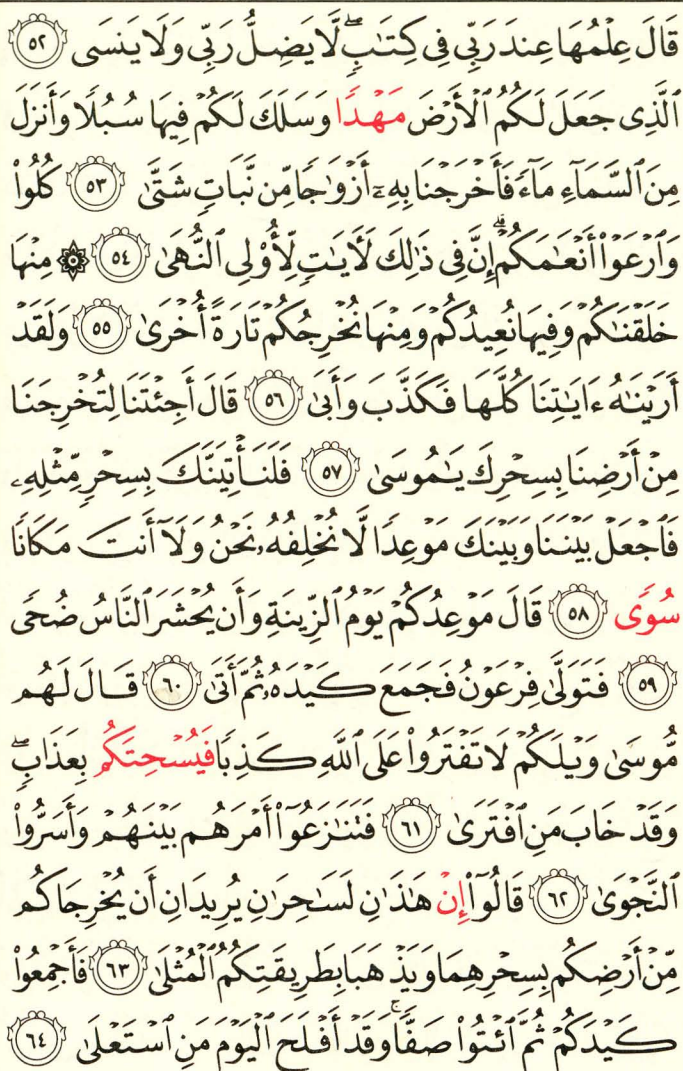 قَالَ عِلْمُهَا عِندَ رَبِّى فِى كِتَـٰبٍۖ لَّا يَضِلُّ رَبِّى وَلَا يَنسَى ٥٢
ٱلَّذِى جَعَلَ لَكُمُ ٱلْأَرْضَ مَهْدًا وَسَلَكَ لَكُمْ فِيهَا سُبُلًا وَأَنزَلَ
مِنَ ٱلسَّمَآءِ مَآءً فَأَخْرَجْنَا بِهِۦٓ أَزْوَٰجًا مِّن نَّبَاتٍ شَتَّىٰ ٥٣ كُلُوا۟
وَٱرْعَوْا۟ أَنْعَـٰمَكُمْۗ إِنَّ فِى ذَٰلِكَ لَـَٔايَـٰتٍ لِّأُو۟لِى ٱلنُّهَىٰ ٥٤ ۞ مِنْهَا
خَلَقْنَـٰكُمْ وَفِيهَا نُعِيدُكُمْ وَمِنْهَا نُخْرِجُكُمْ تَارَةً أُخْرَىٰ ٥٥ وَلَقَدْ
أَرَيْنَـٰهُ ءَايَـٰتِنَا كُلَّهَا فَكَذَّبَ وَأَبَىٰ ٥٦ قَالَ أَجِئْتَنَا لِتُخْرِجَنَا
مِنْ أَرْضِنَا بِسِحْرِكَ يَـٰمُوسَىٰ ٥٧ فَلَنَأْتِيَنَّكَ بِسِحْرٍ مِّثْلِهِۦ
فَٱجْعَلْ بَيْنَنَا وَبَيْنَكَ مَوْعِدًا لَّا نُخْلِفُهُۥ نَحْنُ وَلَآ أَنتَ مَكَانًا
سُوًى ٥٨ قَالَ مَوْعِدُكُمْ يَوْمُ ٱلزِّينَةِ وَأَن يُحْشَرَ ٱلنَّاسُ ضُحًى
٥٩ فَتَوَلَّىٰ فِرْعَوْنُ فَجَمَعَ كَيْدَهُۥ ثُمَّ أَتَىٰ ٦٠ قَالَ لَهُم
مُّوسَىٰ وَيْلَكُمْ لَا تَفْتَرُوا۟ عَلَى ٱللَّهِ كَذِبًا فَيُسْحِتَكُم بِعَذَابٍۖ
وَقَدْ خَابَ مَنِ ٱفْتَرَىٰ ٦١ فَتَنَـٰزَعُوٓا۟ أَمْرَهُم بَيْنَهُمْ وَأَسَرُّوا۟
ٱلنَّجْوَىٰ ٦٢ قَالُوٓا۟ إِنْ هَـٰذَٰنِ لَسَـٰحِرَٰنِ يُرِيدَانِ أَن يُخْرِجَاكُم
مِّنْ أَرْضِكُم بِسِحْرِهِمَا وَيَذْهَبَا بِطَرِيقَتِكُمُ ٱلْمُثْلَىٰ ٦٣ فَأَجْمِعُوا۟
كَيْدَكُمْ ثُمَّ ٱئْتُوا۟ صَفًّاۚ وَقَدْ أَفْلَحَ ٱلْيَوْمَ مَنِ ٱسْتَعْلَىٰ ٦٤